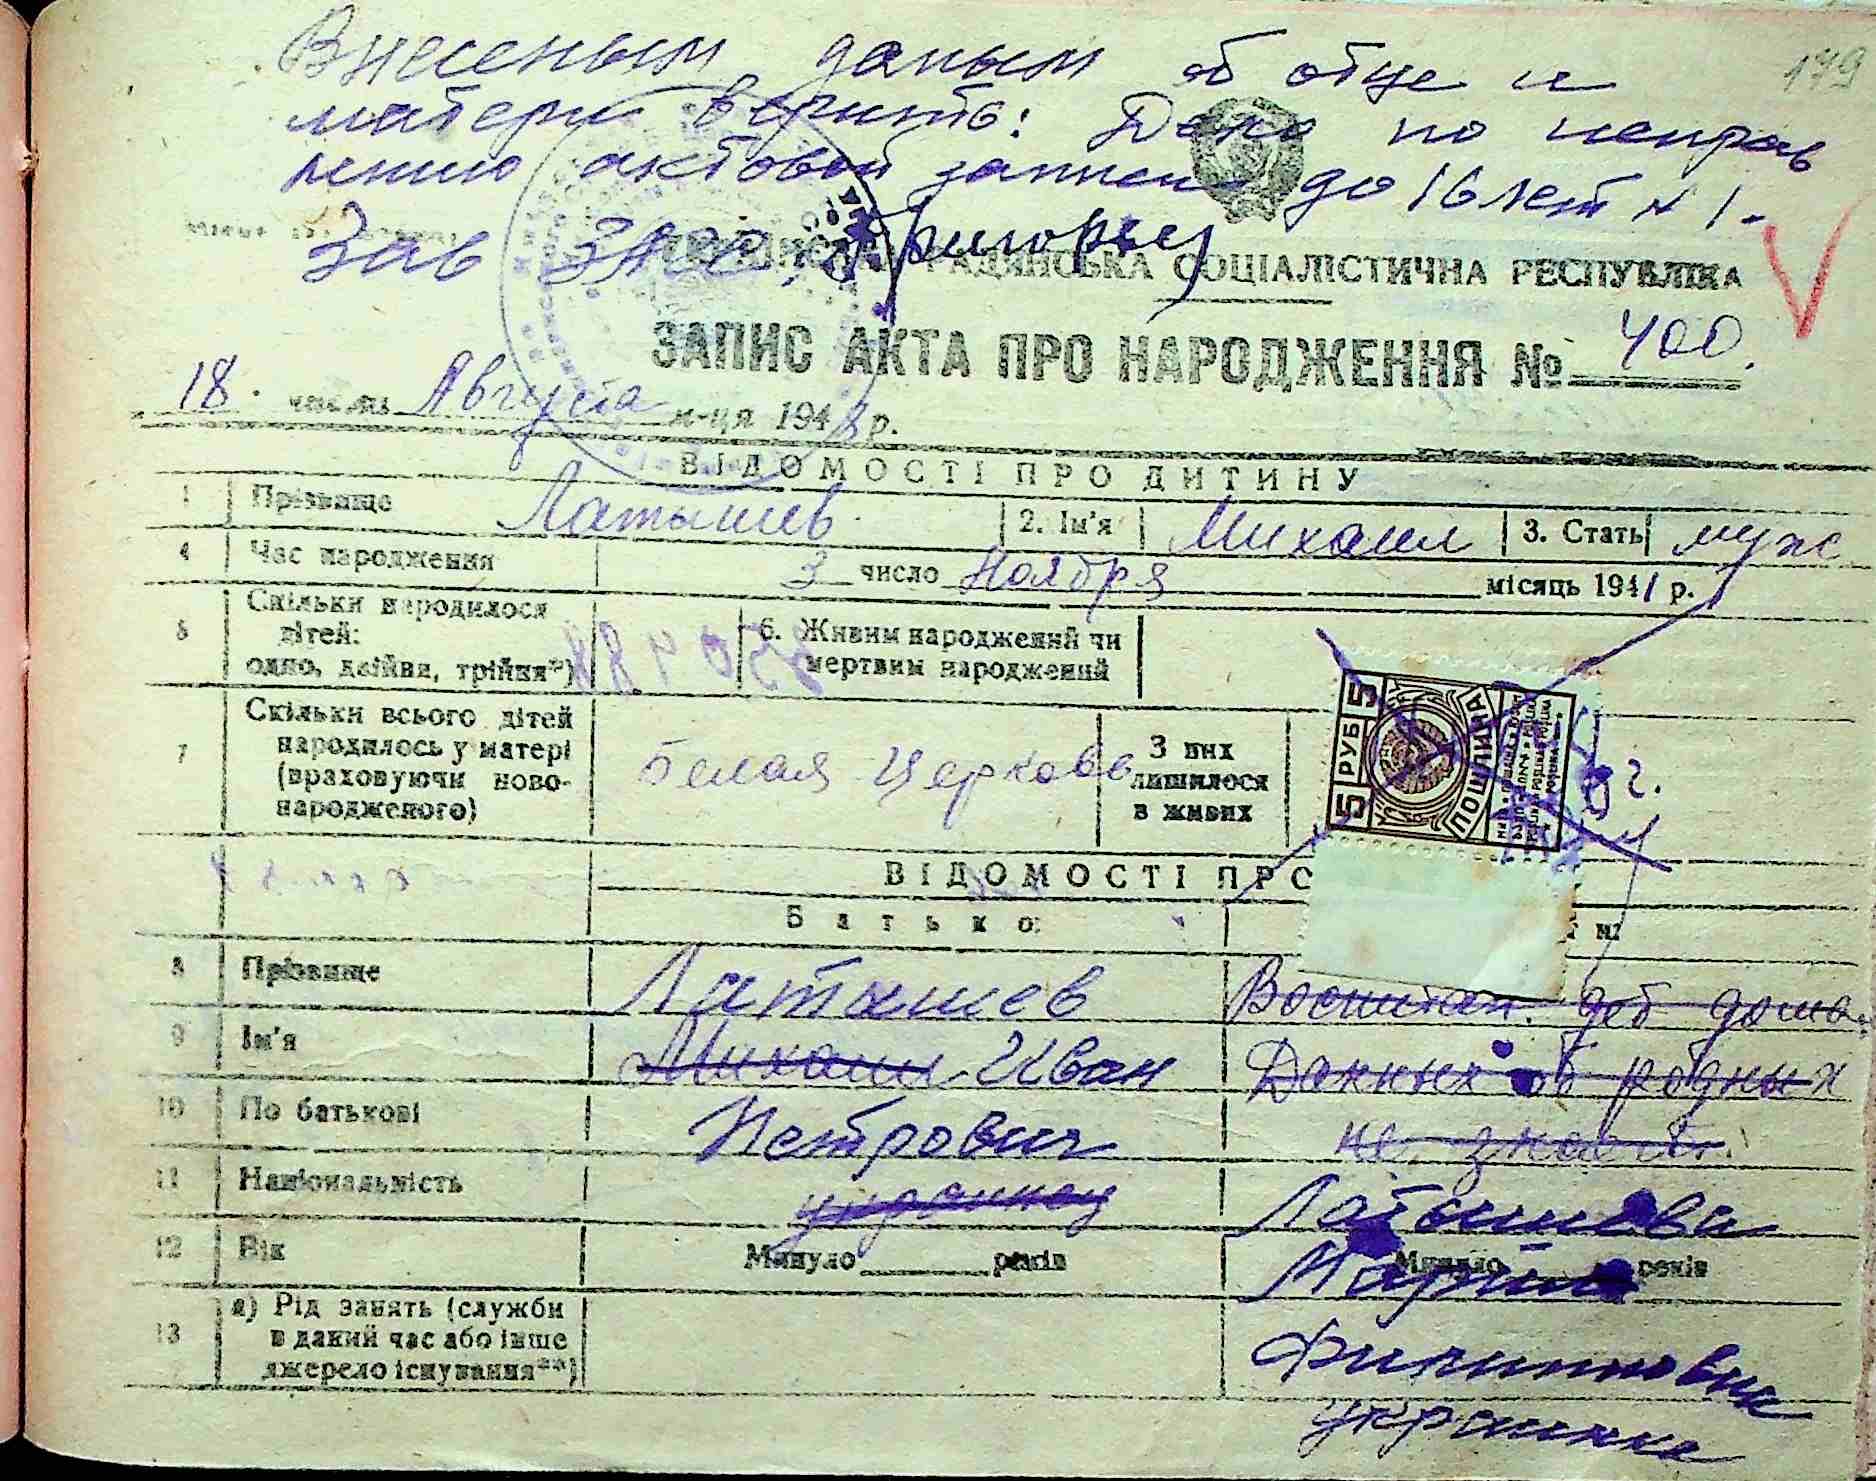 Внесеным даным об отце и 179
матери верить: Дело по исправ
лению актовой записи до 16 лет № 1.
Зав ЗАГС
РАДЯНСЬКА СОЦІАЛІСТИЧНА РЕСПУБЛІКА
ЗАПИС АКТА ПРО НАРОДЖЕННЯ № 400.
18. числа Августа м-ця 1948 р.
ВІДОМОСТІ ПРО ДИТИНУ
1 Прізвище Латышев 2. Ім'я Михаил 3. Стать муж
4 Час народження 3 число Ноября місяць 1941 р.
5 Скільки народилося
дітей:
одно, двійня, трійня*)
6. Живим народжений чи
мертвим народжений
7 Скільки всього дітей
народилось у матері
(враховуючи ново-
народженого)
Белая Церковь
З них
лишилося
в живих
5 РУБ 5
ПОШЛИНА
г.
ВІДОМОСТІ ПРО
Батько
8 Прізвище Латышев Воспитан. дет дома.
9 Ім'я Михаил Иван Данных об родных
10 По батькові Петрович не знает.
11 Національність украинец Латышева
12 Вік Минуло років Минуло років
Мария
13 а) Рід занять (служби
в даний час або інше
джерело існування**)
Филипповна
украинка